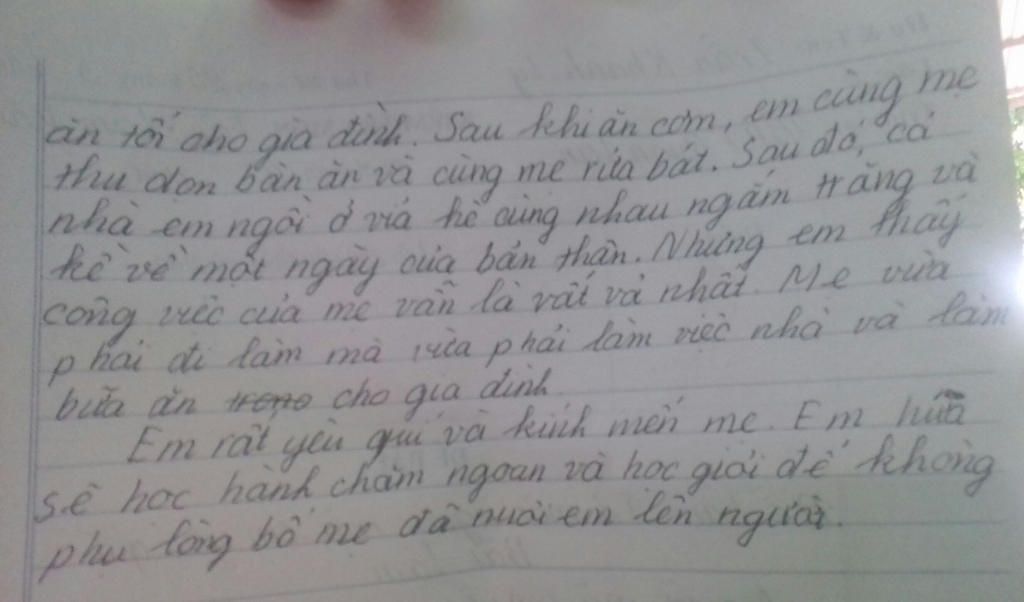 ăn tối cho gia đình. Sau khi ăn cơm, em cùng mẹ
thu dọn bàn ăn và cùng mẹ rửa bát. Sau đó, cả
nhà em ngồi ở vỉa hè cùng nhau ngắm trăng và
kể về một ngày của bản thân. Nhưng em thấy
công việc của mẹ vẫn là vất vả nhất. Mẹ vừa
phải đi làm mà vừa phải làm việc nhà và làm
bữa ăn cho gia đình.
Em rất yêu quí và kính mến mẹ. Em hứa
sẽ học hành chăm ngoan và học giỏi để không
phụ lòng bố mẹ đã nuôi em lên người.